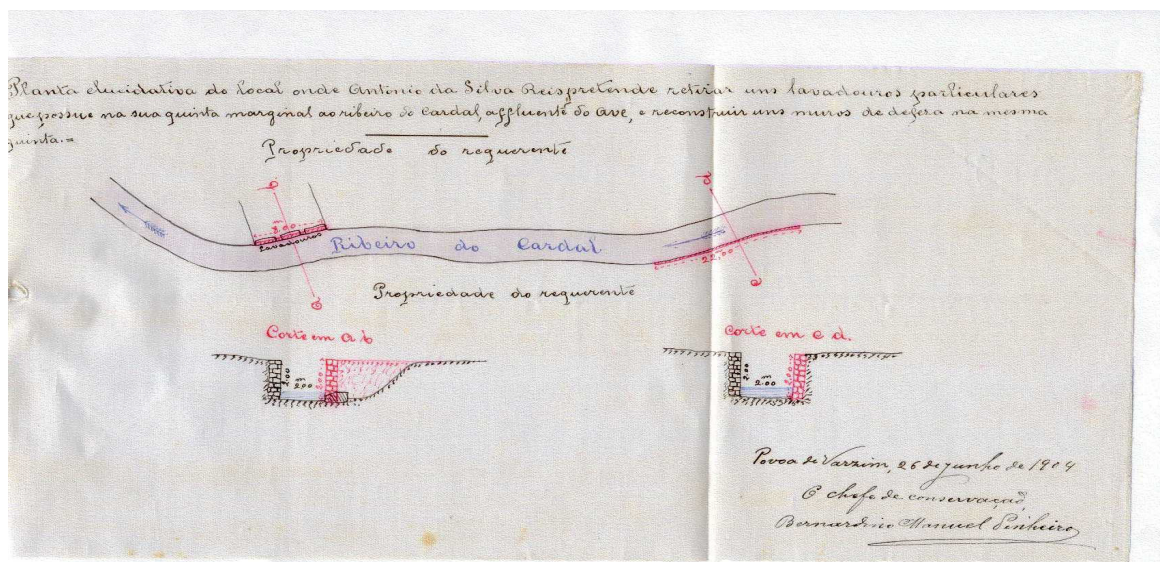 Planta elucidativa do local onde Antonio da Silva Reis pretende retirar uns lavadouros particulares
que possue na sua quinta marginal ao ribeiro do Cardal, affluente do Ave, e reconstruir uns muros de defeza na mesma
quinta.=
Propriedade do requerente
b
d
8,00
Lavadouros
Ribeiro do Cardal
22,00
a
c
Propriedade do requerente
Corte em a b
Corte em c d.
2,00
m
2,00
2,00
2,00
m
2,00
2,00
Povoa de Varzim, 26 de junho de 1904
O chefe de conservação,
Bernardino Manuel Pinheiro